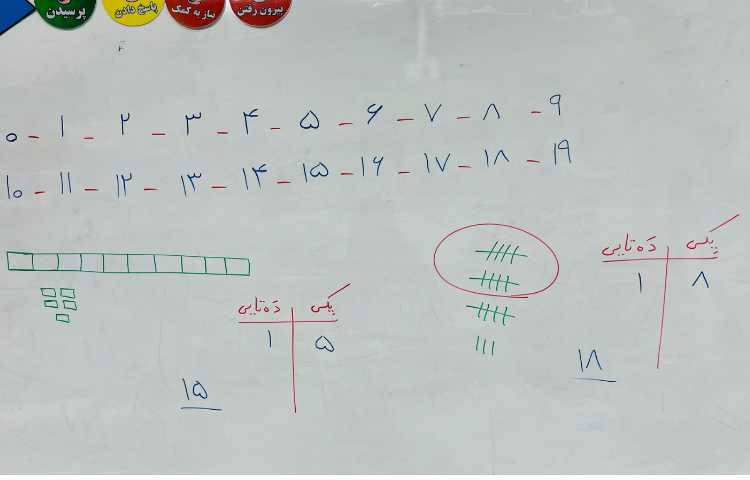 پرسیدن پاسخ دادن نیاز به کمک بیرون رفتن
۰ - ۱ - ۲ - ۳ - ۴ - ۵ - ۶ - ۷ - ۸ - ۹
۱۰ - ۱۱ - ۱۲ - ۱۳ - ۱۴ - ۱۵ - ۱۶ - ۱۷ - ۱۸ - ۱۹
دَه تایی یکی
۱ ۸
۱۸
دَه تایی یکی
۱ ۵
۱۵